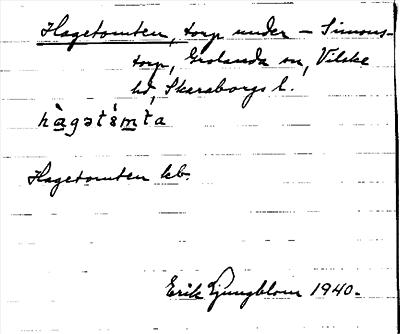 Hagetomten, torp under – Simons-
torp, Grolanda sn, Vilske
hd, Skaraborgs l.
hàgəts̀m̀ta
Hagetomten kb.
Erik Ljungblom 1940.